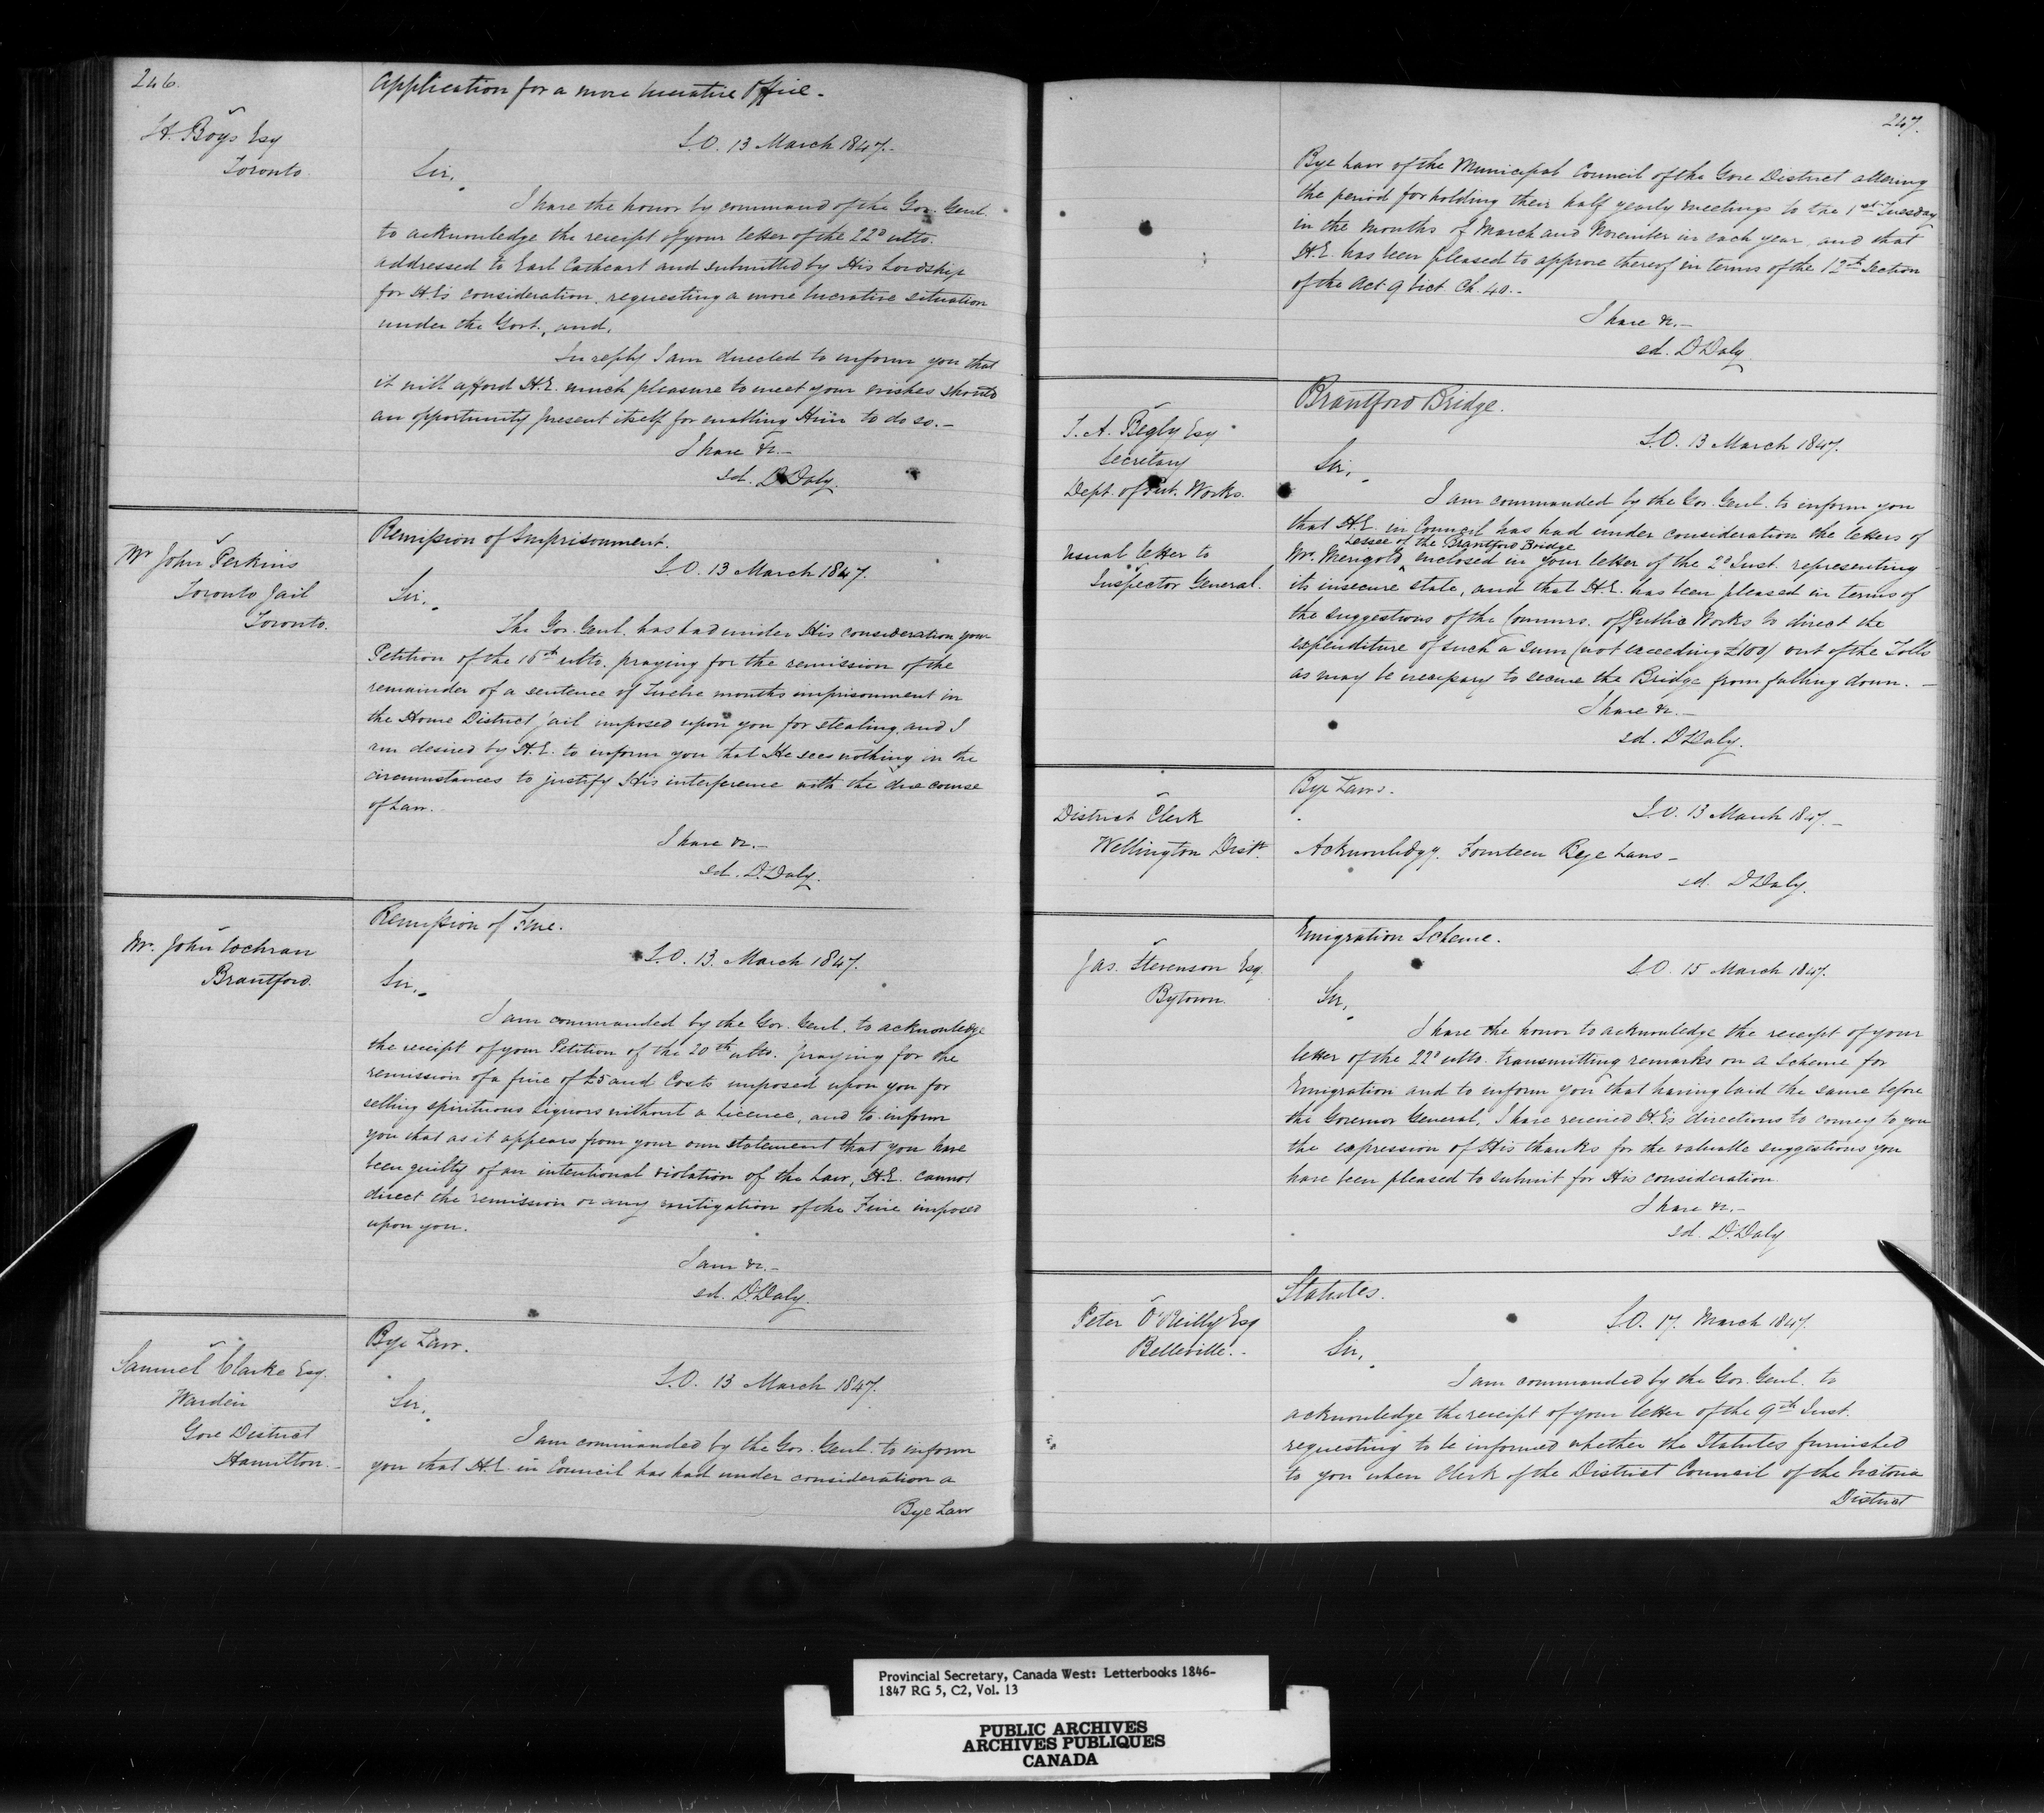 246.
Application for a more lucrative Office.
H. Boys Esq
Toronto.
S.O. 13 March 1847.
Sir,
I have the honor by command of the Gov. Genl.
to acknowledge the receipt of your letter of the 22d ulto.
addressed to Earl Cathcart and submitted by His Lordship
for H.E's consideration, requesting a more lucrative situation
under the Govt., and,
In reply I am directed to inform you that
it will afford H.E. much pleasure to meet your wishes should
an opportunity present itself for enabling Him to do so. -
I have &c. -
sd. D Daly.
Remission of Imprisonment.
Mr John Perkins
Toronto Jail
Toronto.
S.O. 13 March 1847.
Sir,
The Gov. Genl. has had under His consideration your
Petition of the 15th ulto. praying for the remission of the
remainder of a sentence of Twelve months imprisonment in
the Home District jail imposed upon you for stealing, and I
am desired by H.E. to inform you that He sees nothing in the
circumstances to justify His interference with the due course
of Law.
I have &c. -
sd. D. Daly.
Remission of Fine.
Mr. John Cochran
Brantford.
S.O. 13. March 1847.
Sir,
I am commanded by the Gov. Genl. to acknowledge
the receipt of your Petition of the 20th ulto. praying for the
remission of a fine of £5 and Costs imposed upon you for
selling spirituous Liquors without a Licence, and to inform
you that as it appears from your own statement that you have
been guilty of an intentional violation of the Law, H.E. cannot
direct the remission or any mitigation of the Fine imposed
upon you.
I am &c. -
sd. D. Daly.
Bye Law.
Samuel Clarke Esq.
Warden
Gore District
Hamilton. -
S.O. 13 March 1847.
Sir,
I am commanded by the Gov. Genl. to inform
you that H.E. in Council has had under consideration a
Bye Law
247.
Bye Law of the Municipal Council of the Gore District altering
the period for holding their half yearly meetings to the 1st Tuesday
in the months of March and November in each year, and that
H.E. has been pleased to approve thereof in terms of the 12th Section
of the Act 9 Vict. Ch. 40. -
I have &c. -
sd. D Daly.
Brantford Bridge.
T. A. Begly Esq
Secretary
Dept. of Pub. Works.
usual letter to
Inspector General.
S.O. 13 March 1847.
Sir,
I am commanded by the Gov. Genl. to inform you
that H.E. in Council has had under consideration the letters of
Lessee of the Brantford Bridge
Mr. Merigold enclosed in your letter of the 2d Inst. representing
its insecure state, and that H.E. has been pleased in terms of
the suggestions of the Commrs. of Public Works to direct the
expenditure of such a sum (not exceeding £100) out of the Tolls
as may be necessary to secure the Bridge from falling down. -
I have &c. -
sd. D Daly.
Bye Laws.
District Clerk
Wellington Distt.
S.O. 13 March 1847. -
Acknowledgg. Fourteen Bye Laws -
sd. D Daly.
Emigration Scheme.
Jas. Stevenson Esq.
Bytown.
S.O. 15 March 1847.
Sir,
I have the honor to acknowledge the receipt of your
letter of the 22d ulto. transmitting remarks on a Scheme for
Emigration and to inform you that having laid the same before
the Governor General, I have received H.E's directions to convey to you
the expression of His thanks for the valuable suggestions you
have been pleased to submit for His consideration.
I have &c. -
sd. D. Daly
Statutes.
Peter O'Reilly Esq
Belleville. -
S.O. 17. March 1847.
Sir,
I am commanded by the Gov. Genl. to
acknowledge the receipt of your letter of the 9th Inst.
requesting to be informed whether the Statutes furnished
to you when Clerk of the District Council of the Victoria
District
Provincial Secretary, Canada West: Letterbooks 1846-
1847 RG 5, C2, Vol. 13
PUBLIC ARCHIVES
ARCHIVES PUBLIQUES
CANADA